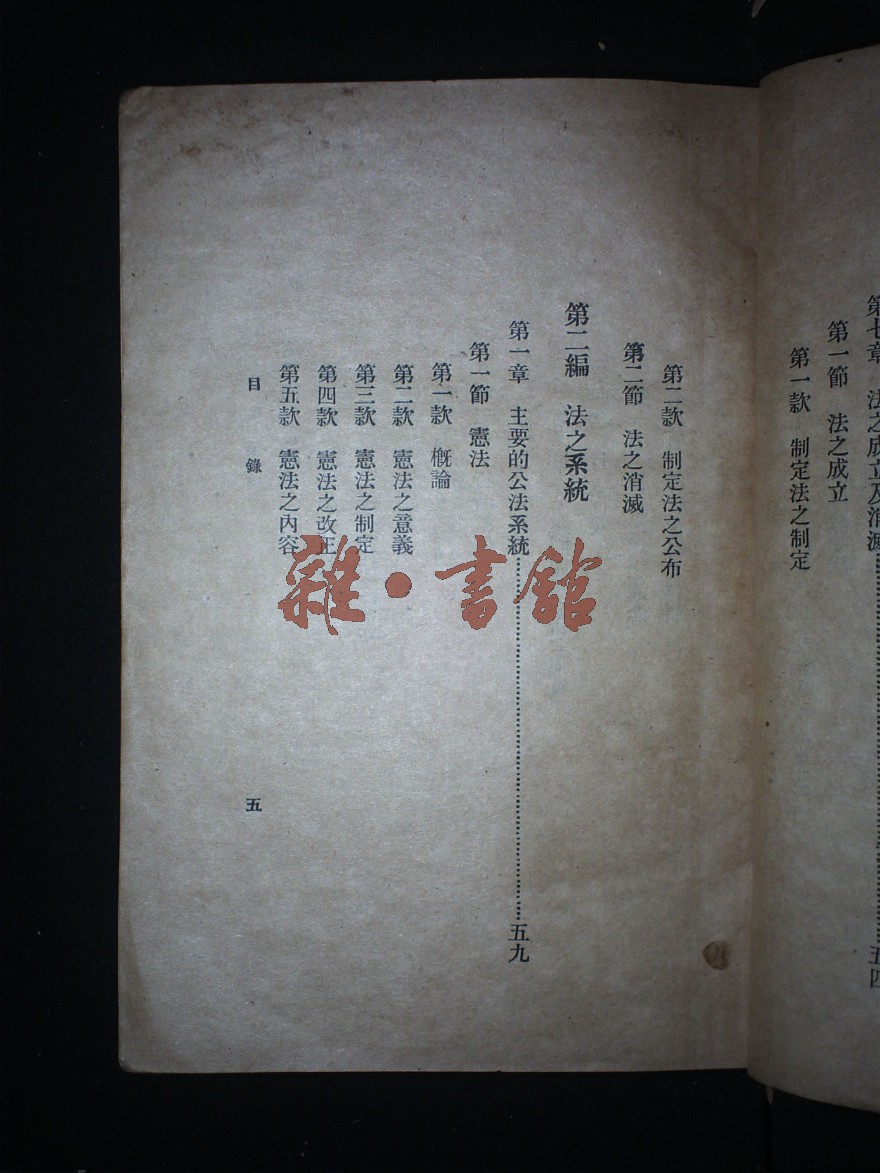 第七章　法之成立及消滅……五四
第一節　法之成立
第一款　制定法之制定
第二款　制定法之公布
第二節　法之消滅
第二編　法之系統
第一章　主要的公法系統……五九
第一節　憲法
第一款　概論
第二款　憲法之意義
第三款　憲法之制定
第四款　憲法之改正
第五款　憲法之內容
目錄
五
雜・書館